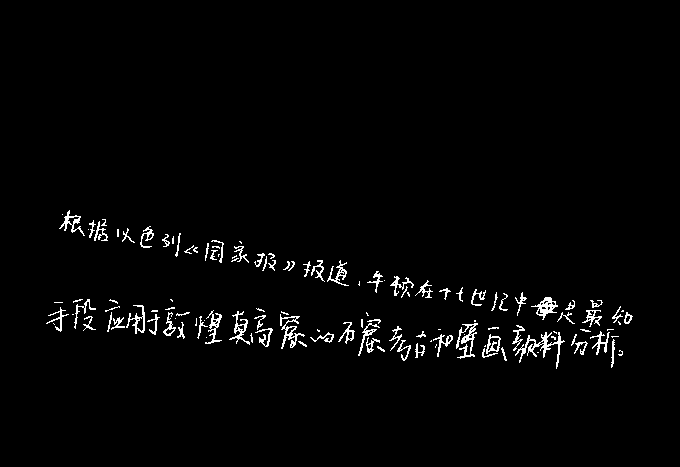 根据以色列《国家报》报道,牛顿在十七世纪中是最知
手段应用于敦煌真高窟的石窟考古和壁画颜料分析。